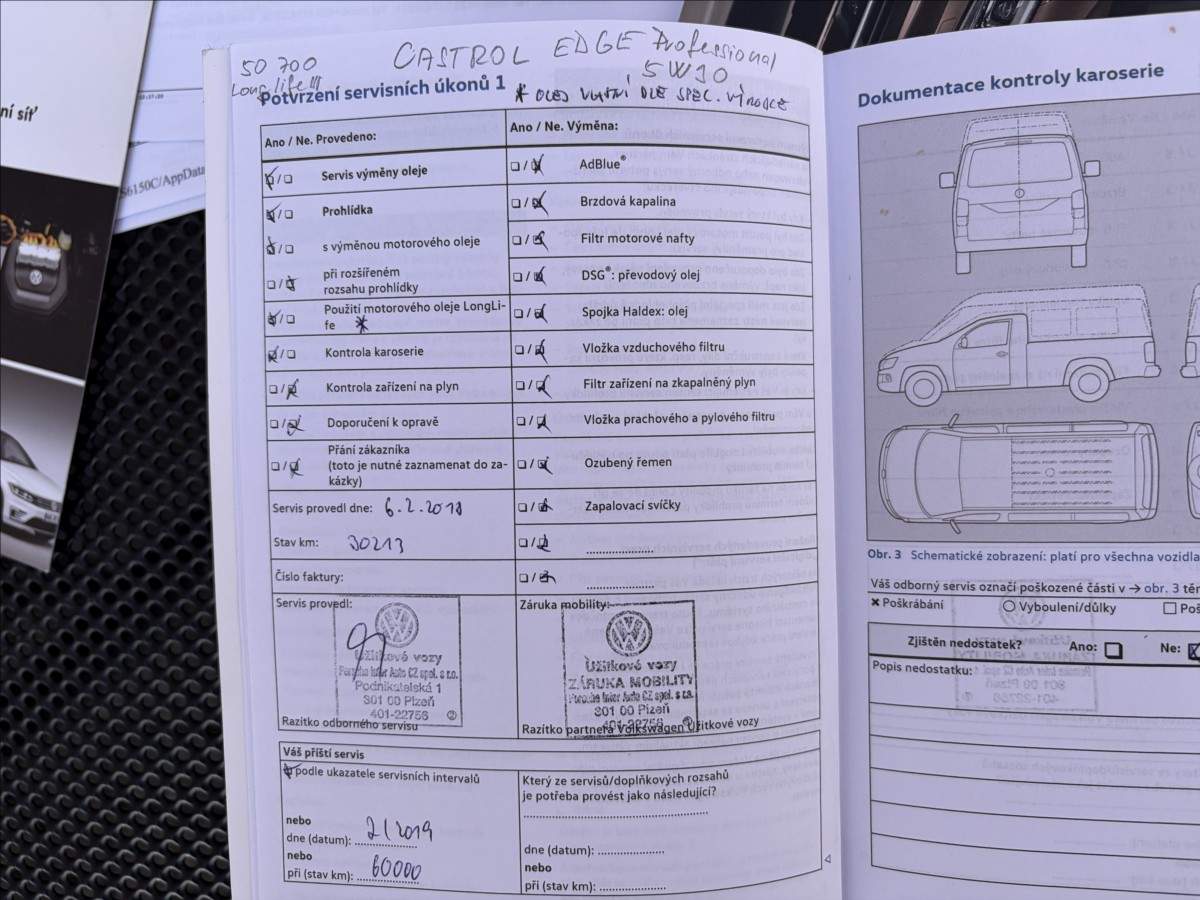 ní síť
S6150C/AppData
50 700
CASTROL EDGE Professional
Long life!!!
5W30
Potvrzení servisních úkonů 1
* OLEJ VLASTNÍ DLE SPEC. VÝROBCE
Ano / Ne. Provedeno:
Ano / Ne. Výměna:
Servis výměny oleje
AdBlue®
Prohlídka
Brzdová kapalina
s výměnou motorového oleje
Filtr motorové nafty
při rozšířeném
rozsahu prohlídky
DSG®: převodový olej
Použití motorového oleje LongLi-
fe *
Spojka Haldex: olej
Kontrola karoserie
Vložka vzduchového filtru
Kontrola zařízení na plyn
Filtr zařízení na zkapalněný plyn
Doporučení k opravě
Vložka prachového a pylového filtru
Přání zákazníka
(toto je nutné zaznamenat do za-
kázky)
Ozubený řemen
Servis provedl dne: 6.2.2018
Zapalovací svíčky
Stav km: 30213
Číslo faktury:
Servis provedl:
Užitkové vozy
Porsche Inter Auto CZ spol. s r.o.
Podnikatelská 1
301 00 Plzeň
401-22756 ②
Razítko odborného servisu
Záruka mobility:
Užitkové vozy
ZÁRUKA MOBILITY
Porsche Inter Auto CZ spol. s r.o.
301 00 Plzeň
401-22756
Razítko partnera Volkswagen Užitkové vozy
Váš příští servis
podle ukazatele servisních intervalů
nebo
dne (datum): 2/2019
nebo
při (stav km): 60000
Který ze servisů/doplňkových rozsahů
je potřeba provést jako následující?
dne (datum):
nebo
při (stav km):
Dokumentace kontroly karoserie
Obr. 3 Schematické zobrazení: platí pro všechna vozidla
Váš odborný servis označí poškozené části v → obr. 3
× Poškrábání ○ Vyboulení/důlky □
Zjištěn nedostatek? Ano: Ne:
Popis nedostatku: